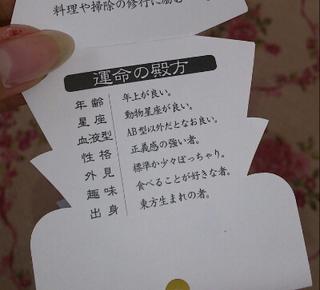 料理や掃除の修行に励む
運命の殿方
年齢 年上が良い。
星座 動物星座が良い。
血液型 AB型以外だとなお良い。
性格 正義感の強い者。
外見 標準か少々ぽっちゃり。
趣味 食べることが好きな者。
出身 東方生まれの者。